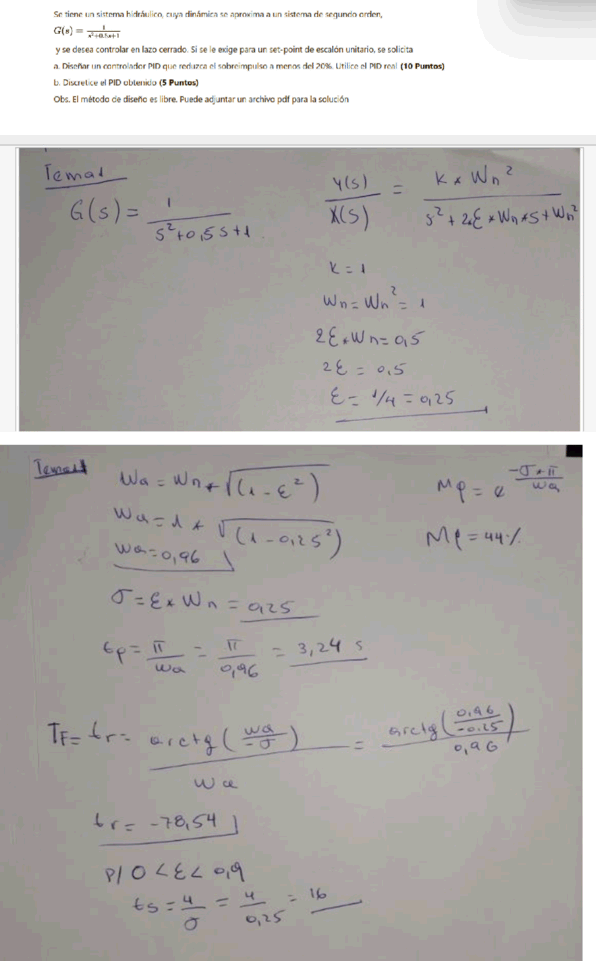 Se tiene un sistema hidráulico, cuya dinámica se aproxima a un sistema de segundo orden,
G(s) = 1/(s²+0.5s+1)
y se desea controlar en lazo cerrado. Si se le exige para un set-point de escalón unitario, se solicita
a. Diseñar un controlador PID que reduzca el sobreimpulso a menos del 20%. Utilice el PID real (10 Puntos)
b. Discretice el PID obtenido (5 Puntos)
Obs. El método de diseño es libre. Puede adjuntar un archivo pdf para la solución
Tema1
G(s) = 1/(s²+0,5s+1)
Y(s)/X(s) = K * Wn²/(s²+2ε*Wn*s+Wn²)
K = 1
Wn = Wn² = 1
2ε*Wn = 0,5
2ε = 0,5
ε = 1/4 = 0,25
Tema1
Wa = Wn * √(1-ε²)
Mp = e^(-σ*π/wa)
Wa = 1 * √(1-0,25²)
Mp = 44%
Wa = 0,96
σ = ε * Wn = 0,25
tp = π/wa = π/0,96 = 3,24 s
TF = tr = arctg(wa/-σ)/Wa = arctg(0,96/-0,25)/0,96
tr = -78,54
P/ 0 < ε < 0,9
ts = 4/σ = 4/0,25 = 16